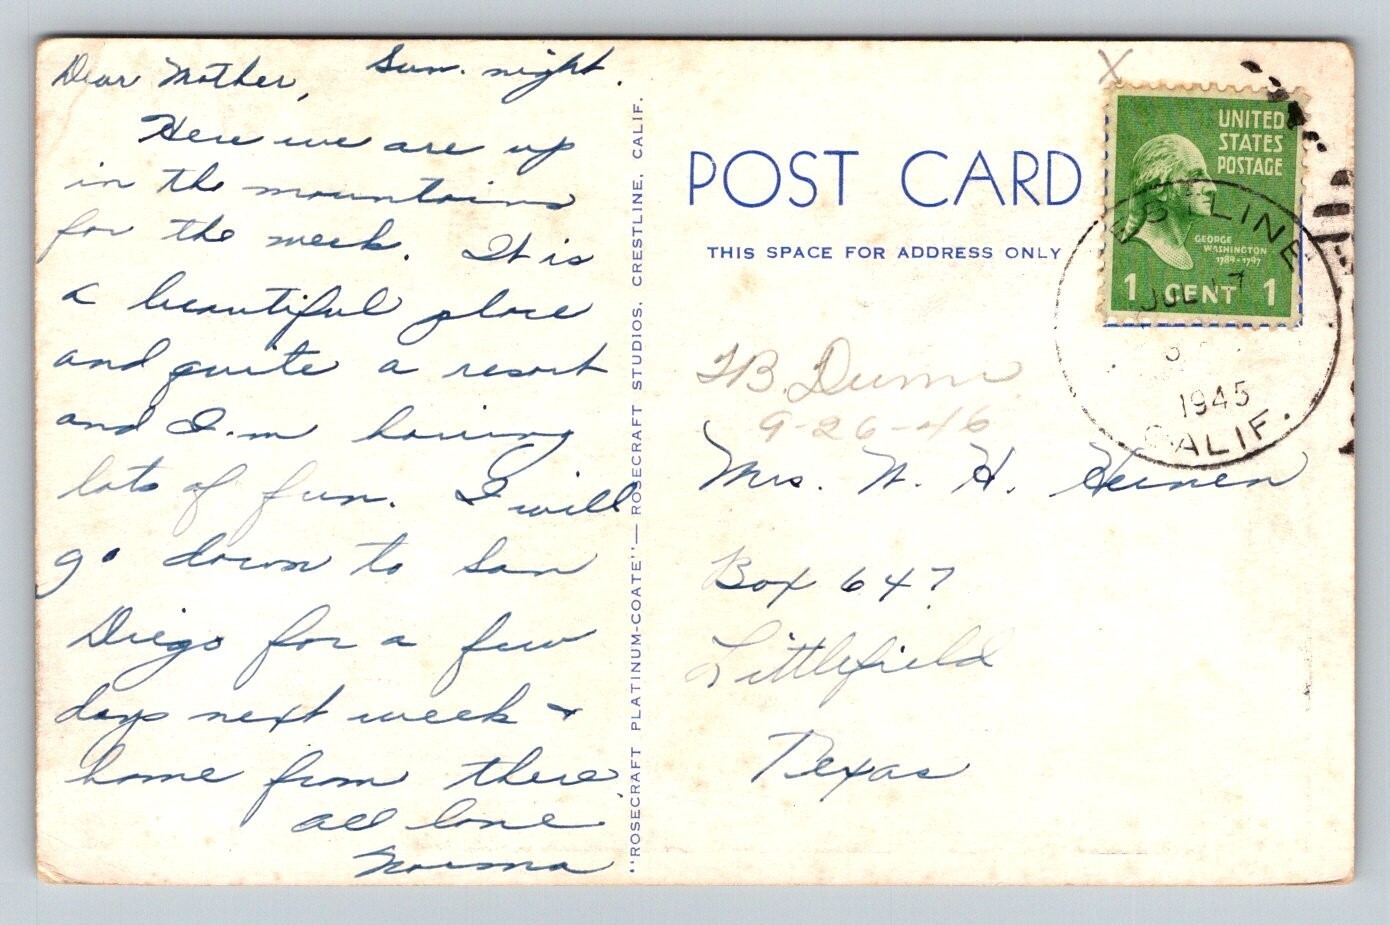 Dear Mother, Sun. night.
Here we are up
in the mountains
for the week. It is
a beautiful place
and quite a resort
and I'm having
lots of fun. I will
go down to San
Diego for a few
days next week +
home from there.
all love
Norma
"ROSECRAFT PLATINUM-COATE"—ROSECRAFT STUDIOS, CRESTLINE, CALIF.
POST CARD
THIS SPACE FOR ADDRESS ONLY
X
UNITED
STATES
POSTAGE
GEORGE
WASHINGTON
1789-1797
1 CENT 1
JUL 17
1945
CALIF.
B. Dunn
9-26-46
Mrs. W. H.
Box 647
Littlefield
Texas